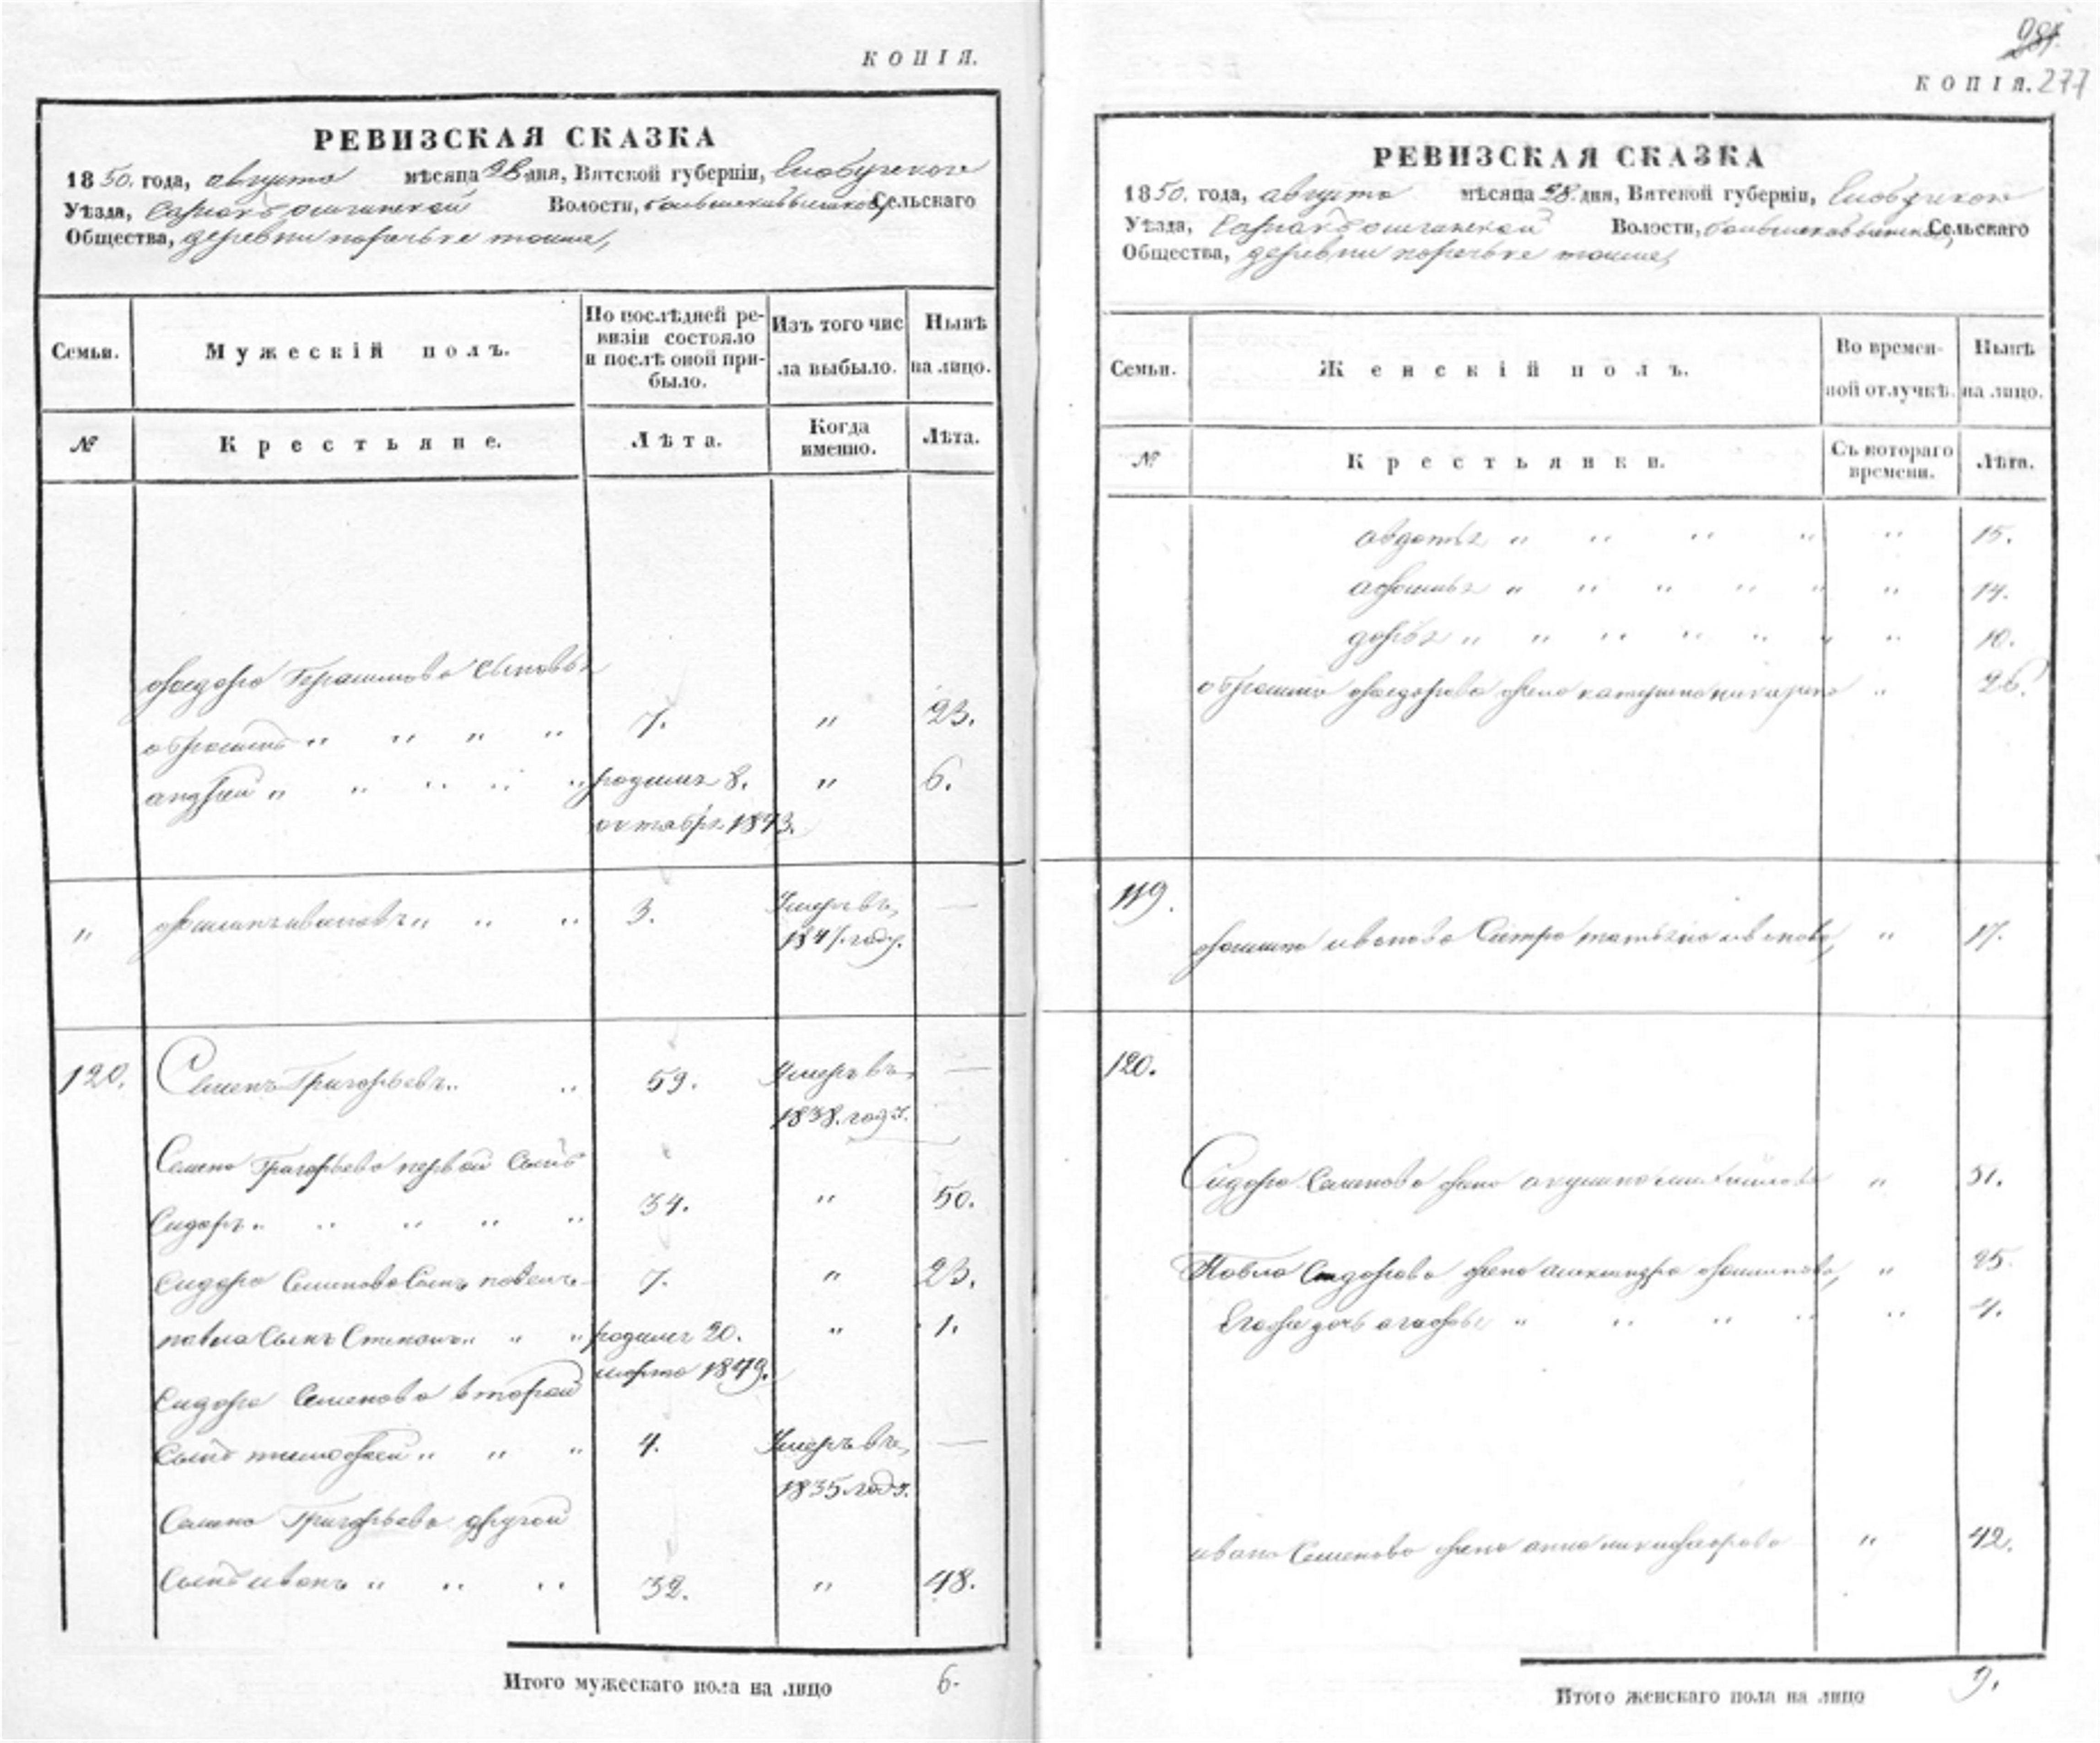 КОПІЯ.
РЕВИЗСКАЯ СКАЗКА
1850. года, августа мѣсяца 28 дня, Вятской губерніи, Елабужскаго
Уѣзда, Волости, Сельскаго
Общества, деревни поречьке
Семьи.
Мужескій полъ.
По послѣдней ре-
визіи состояло
и послѣ оной при-
было.
Изъ того чис
ла выбыло.
Нынѣ
на лицо.
№
Крестьяне.
Лѣта.
Когда
именно.
Лѣта.
федора Герасимова сыновья
" " " " 7. " 23.
андрей " " " " " родился 8. " 6.
октября 1843.
" ивановъ " " " 3. Умеръ въ —
184 году.
120. Семенъ Григорьевъ " " 59. Умеръ въ —
1838. году.
Семена Григорьева первой сынъ
Сидоръ " " " " " 34. " 50.
Сидора Семенова сынъ павелъ 7. " 23.
павла сынъ Степанъ " " " родился 20. " 1.
марта 1849.
Сидора Семенова второй
сынъ тимофей " " " 4. Умеръ въ —
1835 году.
Семена Григорьева другой
сынъ иванъ " " " 32. " 48.
Итого мужескаго пола на лицо 6.
КОПІЯ. 277
РЕВИЗСКАЯ СКАЗКА
1850. года, августа мѣсяца 28. дня, Вятской губерніи, Елабужскаго
Уѣзда, Волости, Сельскаго
Общества, деревни поречьке
Семьи.
Женскій полъ.
Во времен-
ной отлучкѣ.
Нынѣ
на лицо.
№
Крестьянки.
Съ котораго
времени.
Лѣта.
авдотья " " " " " 15.
афимья " " " " " " 14.
дарья " " " " " " " 10.
федорова жена катерина " 26.
119.
иванова сестра татьяна иванова, " 17.
120.
Сидора Семенова жена акулина " 51.
Павла Сидорова жена александра " 25.
Егожа дочь агафья " " " " " 4.
ивана Семенова жена анна никифорова " 42.
Итого женскаго пола на лицо 9.